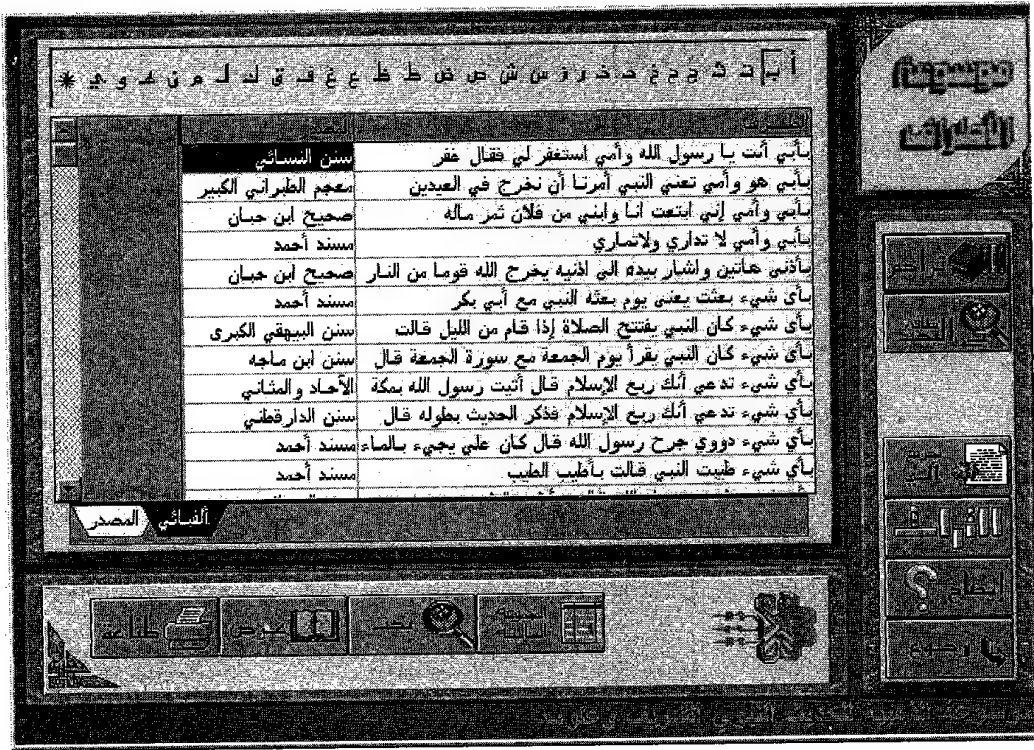 أ ب ت ث ج ح خ د ذ ر ز س ش ص ض ط ظ ع غ ف ق ك ل م ن ه و ي *
موسوعة
الأطراف
المصدر
بأبي أنت يا رسول الله وأمي استغفر لي فقال غفر سنن النسائي
بأبي هو وأمي تعني النبي أمرنا أن نخرج في العيدين معجم الطبراني الكبير
بأبي وأمي إني ابتعت انا وابني من فلان ثمر ماله صحيح ابن حبان
بأبي وأمي لا تداري ولاتماري مسند أحمد
بأذني هاتين واشار بيده الي اذنيه يخرج الله قوما من النار صحيح ابن حبان
بأى شيء بعثت يعني يوم بعثه النبي مع أبي بكر مسند أحمد
بأى شيء كان النبي يفتتح الصلاة إذا قام من الليل قالت سنن البيهقي الكبرى
بأي شيء كان النبي يقرأ يوم الجمعة مع سورة الجمعة قال سنن ابن ماجه
بأي شيء تدعي أنك ربع الإسلام قال أتيت رسول الله بمكة الآحاد والمثاني
بأي شيء تدعي أنك ربع الإسلام فذكر الحديث بطوله قال سنن الدارقطني
بأي شيء دووي جرح رسول الله قال كان علي يجيء بالماء مسند أحمد
بأي شيء طيبت النبي قالت بأطيب الطيب مسند أحمد
ألفبائي المصدر
القائمة السابقة
بحث
عرض
طباعة
إيضاح
رجوع